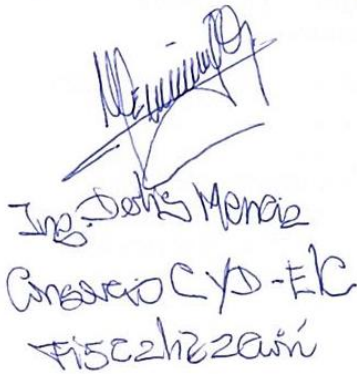 Ing. Delis Mencia
Consorcio CYD-EIC
Fiscalización